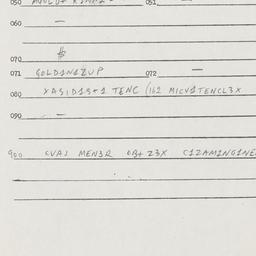 050 051 —
060 —
$
070
071 GOLD1N1ZUP 072 —
080 XASID1S+1 TENC (162 MICV1TENCL3X
090 —
900 CVAS MEN3R OB+ Z3X C1ZAM1NG1NE